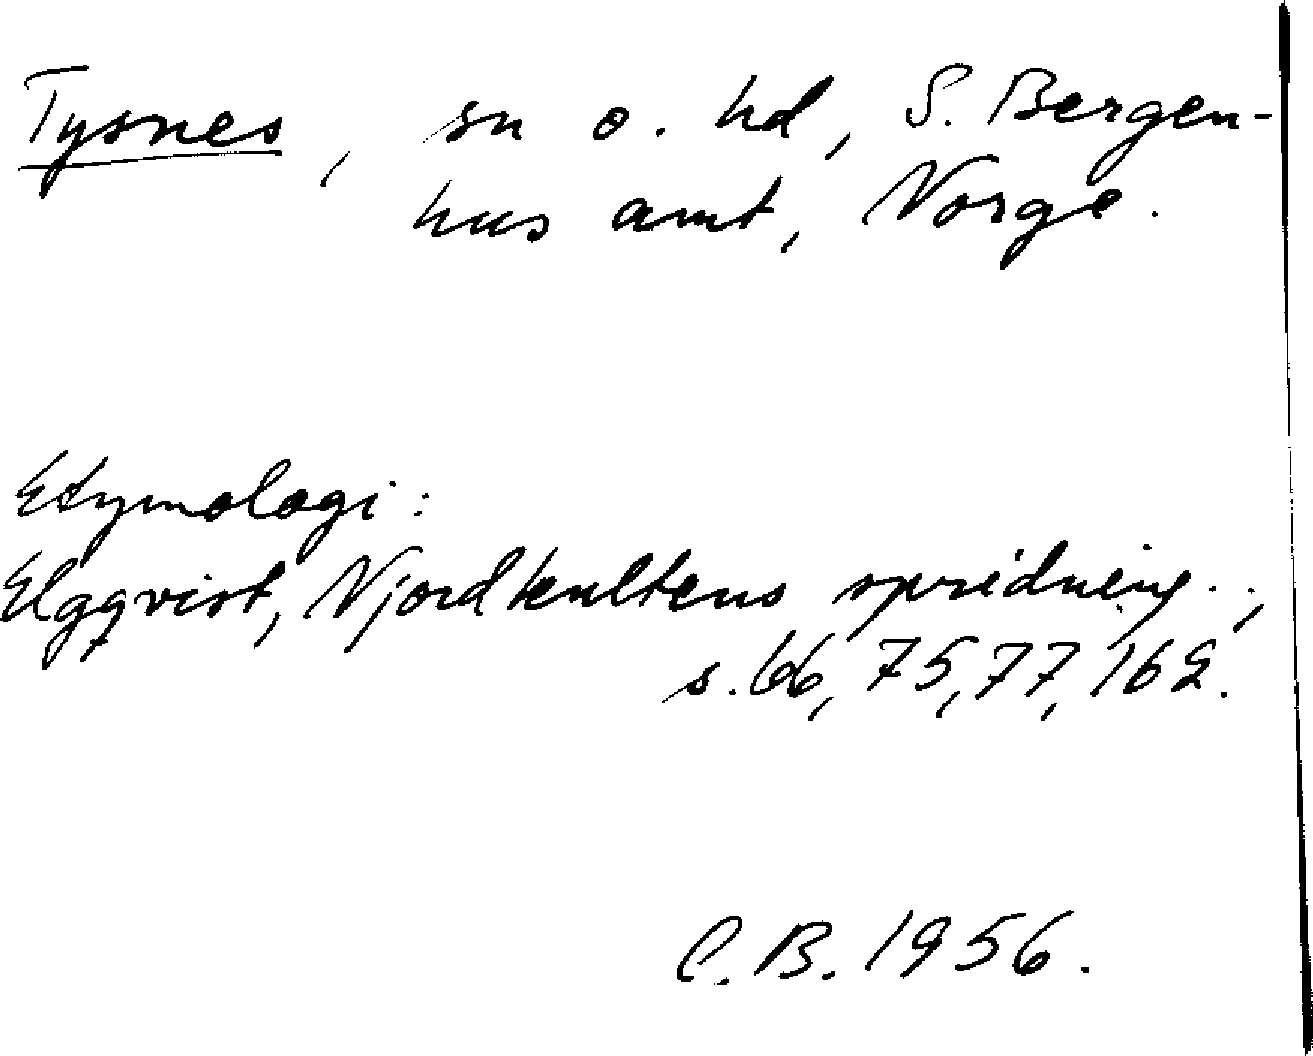 Tysnes, sn o. hd, S. Bergen-
hus amt, Norge.
Etymologi:
Elgqvist, Njordkultens spridning..,
s. 66, 75, 77, 162.
C. B. 1956.